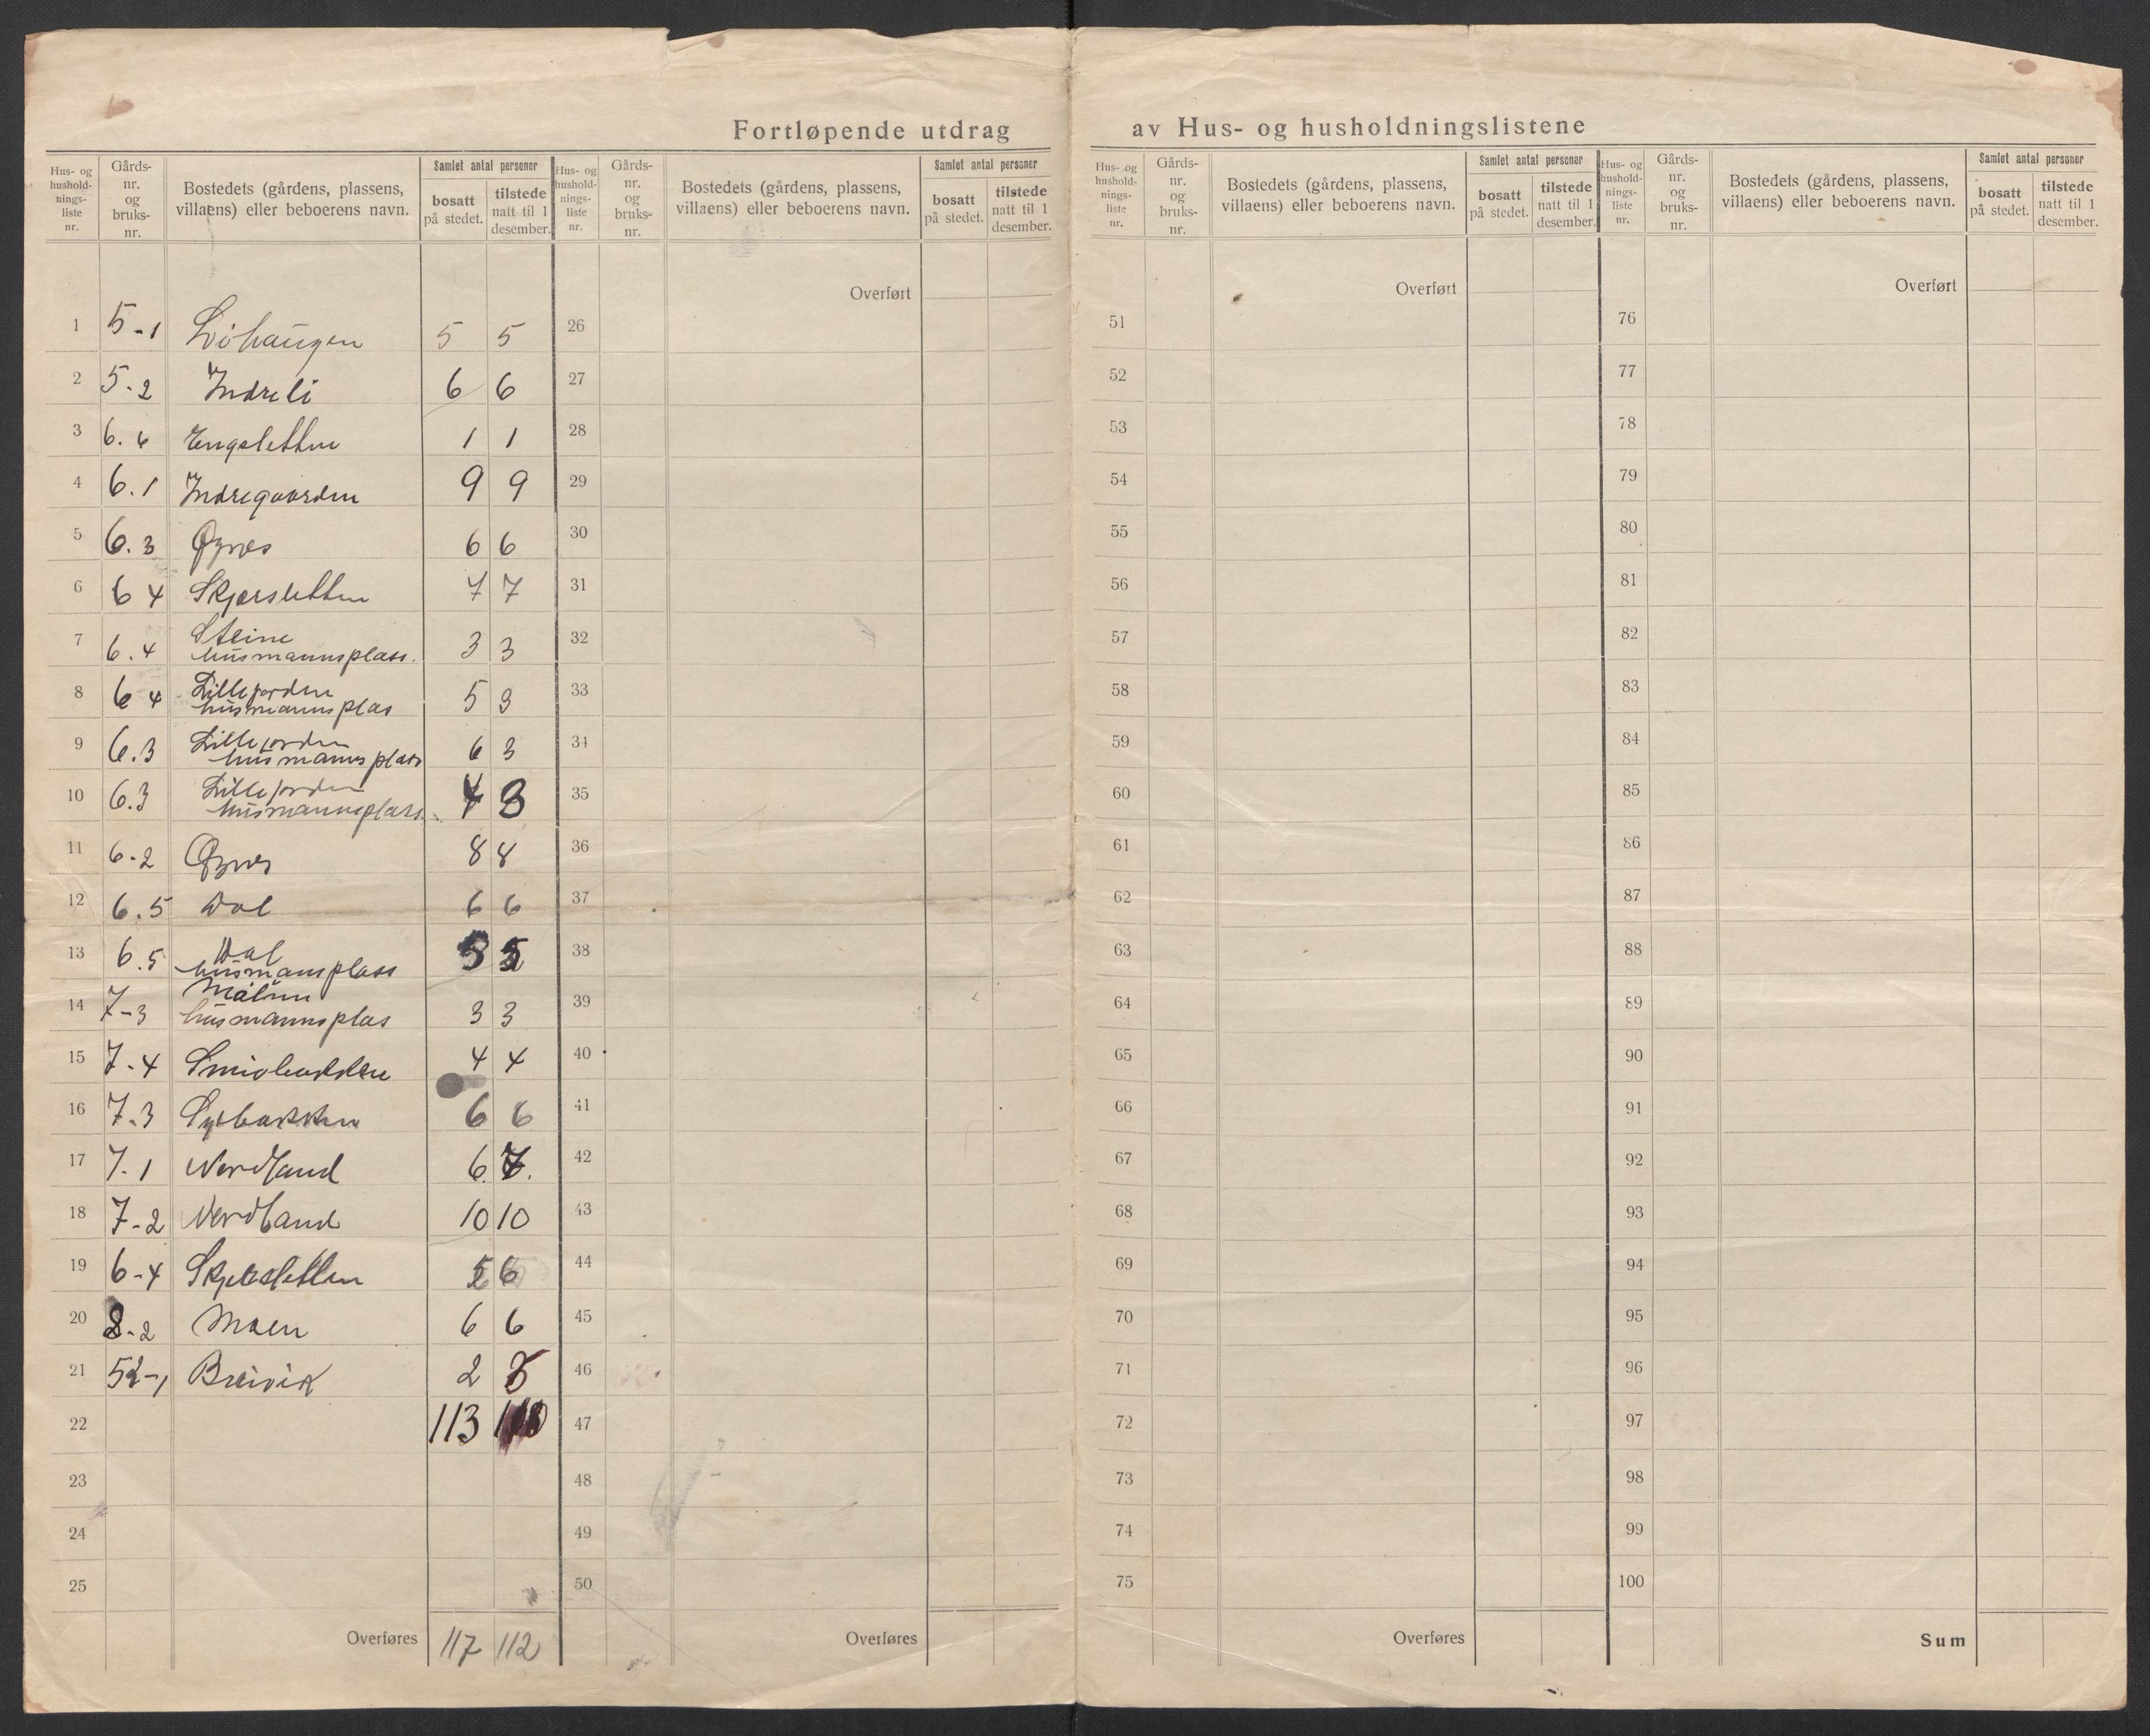 Fortløpende utdrag av Hus- og husholdningslistene
Hus- og hushold-nings-liste nr. Gårds-nr. og bruks-nr. Bostedets (gårdens, plassens, villaens) eller beboerens navn. Samlet antal personer bosatt på stedet. tilstede natt til 1 desember.
Hus- og hushold-nings-liste nr. Gårds-nr. og bruks-nr. Bostedets (gårdens, plassens, villaens) eller beboerens navn. Samlet antal personer bosatt på stedet. tilstede natt til 1 desember.
Hus- og hushold-nings-liste nr. Gårds-nr. og bruks-nr. Bostedets (gårdens, plassens, villaens) eller beboerens navn. Samlet antal personer bosatt på stedet. tilstede natt til 1 desember.
Hus- og hushold-nings-liste nr. Gårds-nr. og bruks-nr. Bostedets (gårdens, plassens, villaens) eller beboerens navn. Samlet antal personer bosatt på stedet. tilstede natt til 1 desember.
Overført Overført Overført
1 5-1 5 5 26 51 76
2 5-2 Indreli 6 6 27 52 77
3 6. Engsletten 1 1 28 53 78
4 6.1 Indregaarden 9 9 29 54 79
5 6.3 Øynes 6 6 30 55 80
6 6 4 Skjærsletten 7 7 31 56 81
7 6.4 Steine husmannsplass. 3 3 32 57 82
8 6 4 Lillejorden husmannsplas 5 3 33 58 83
9 6.3 Lillejorden husmannsplass 6 3 34 59 84
10 6.3 Lillejorden husmannsplass. 4 3 35 60 85
11 6-2 Øynes 8 8 36 61 86
12 6.5 Dal 6 6 37 62 87
13 6.5 Dal husmansplass 5 38 63 88
14 7-3 husmannsplas 3 3 39 64 89
15 7-4 Smiobakken 4 4 40 65 90
16 7.3 6 6 41 66 91
17 7.1 Nordland 6. 7. 42 67 92
18 7-2 Nordland 10 10 43 68 93
19 6-4 6 44 69 94
20 8-2 Moen 6 6 45 70 95
21 52-1 Breivik 2 46 71 96
22 113 47 72 97
23 48 73 98
24 49 74 99
25 50 75 100
Overføres 117 112 Overføres Overføres Sum